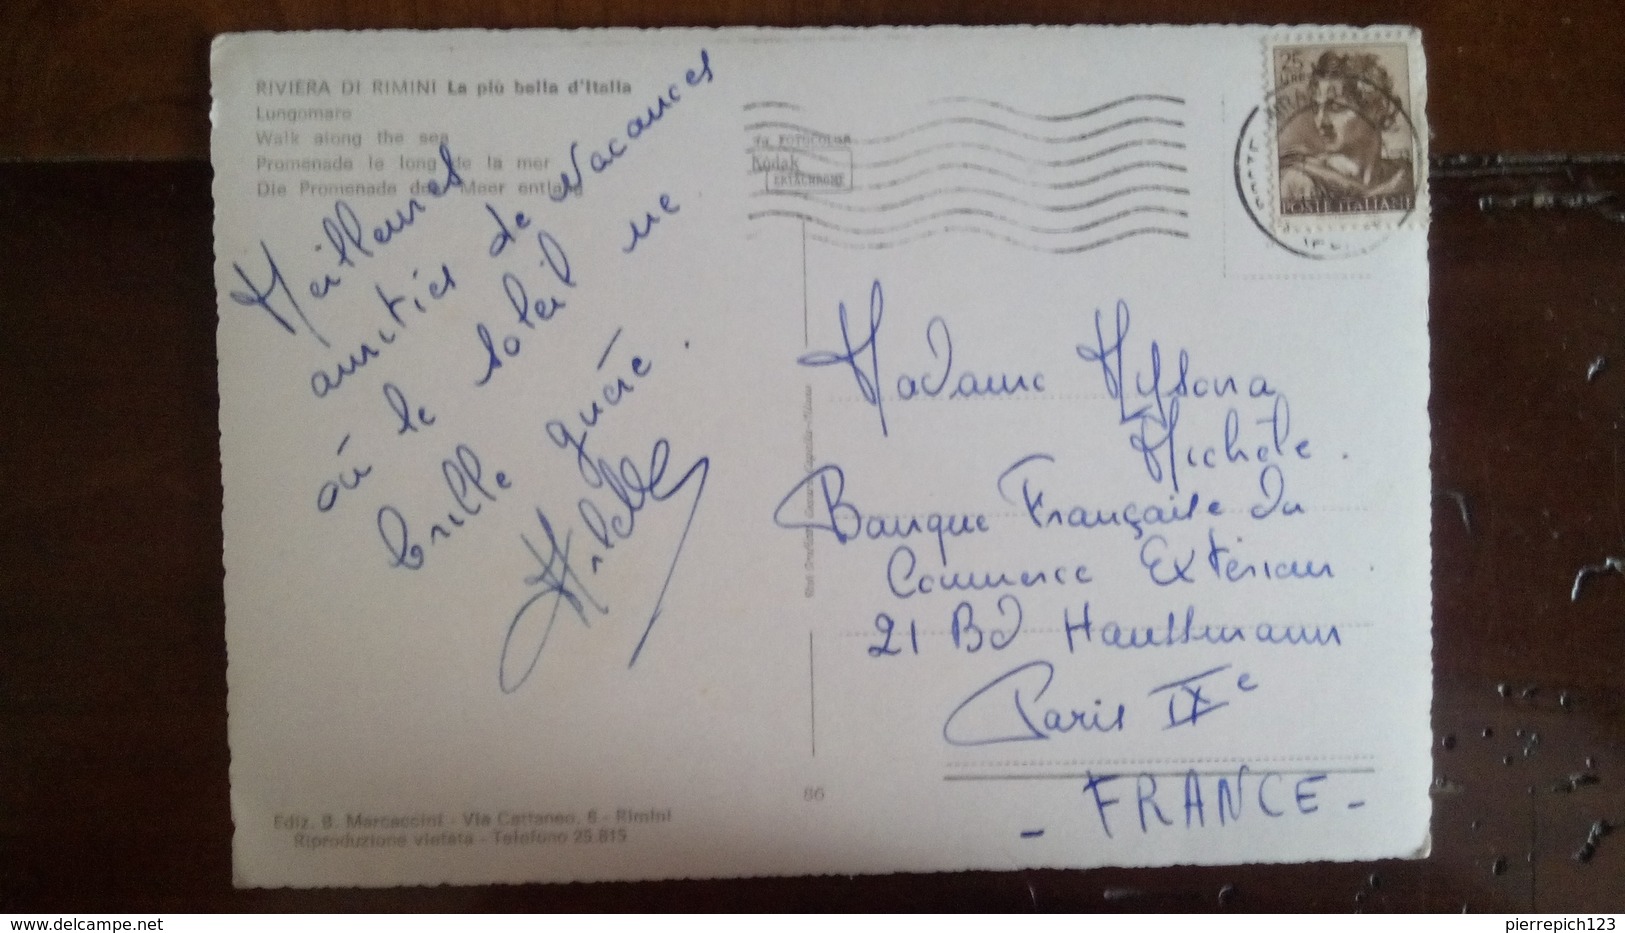 RIVIERA DI RIMINI La più bella d'Italia
Lungomare
Walk along the sea
Promenade le long de la mer
Die Promenade dem Meer entlang
Meilleures
amitiés de vacances
où le soleil ne
brille guère.
Hilde
da FOTOCOLOR
Kodak
EKTACHROME
25
LIRE
POSTE ITALIANE
Madame Myssona
Michèle.
Banque Française du
Commerce Extérieur.
21 Bd Haussmann
Paris IXe
- FRANCE -
86
Ediz. B. Marcaccini - Via Cattaneo, 6 - Rimini
Riproduzione vietata - Telefono 25.815
pierrepich123